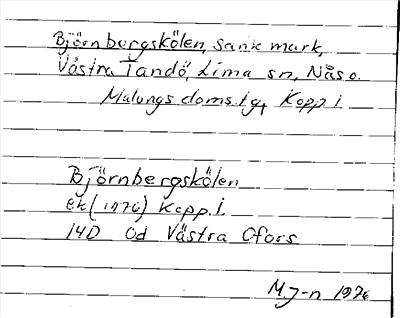 Björnbergskölen, sank mark,
Västra Tandö, Lima sn, Nås o.
Malungs doms.lg, Kopp l.
Björnbergskölen
ek (1976) Kopp.l.
14D 0d Västra Ofors
M.J-n 1976